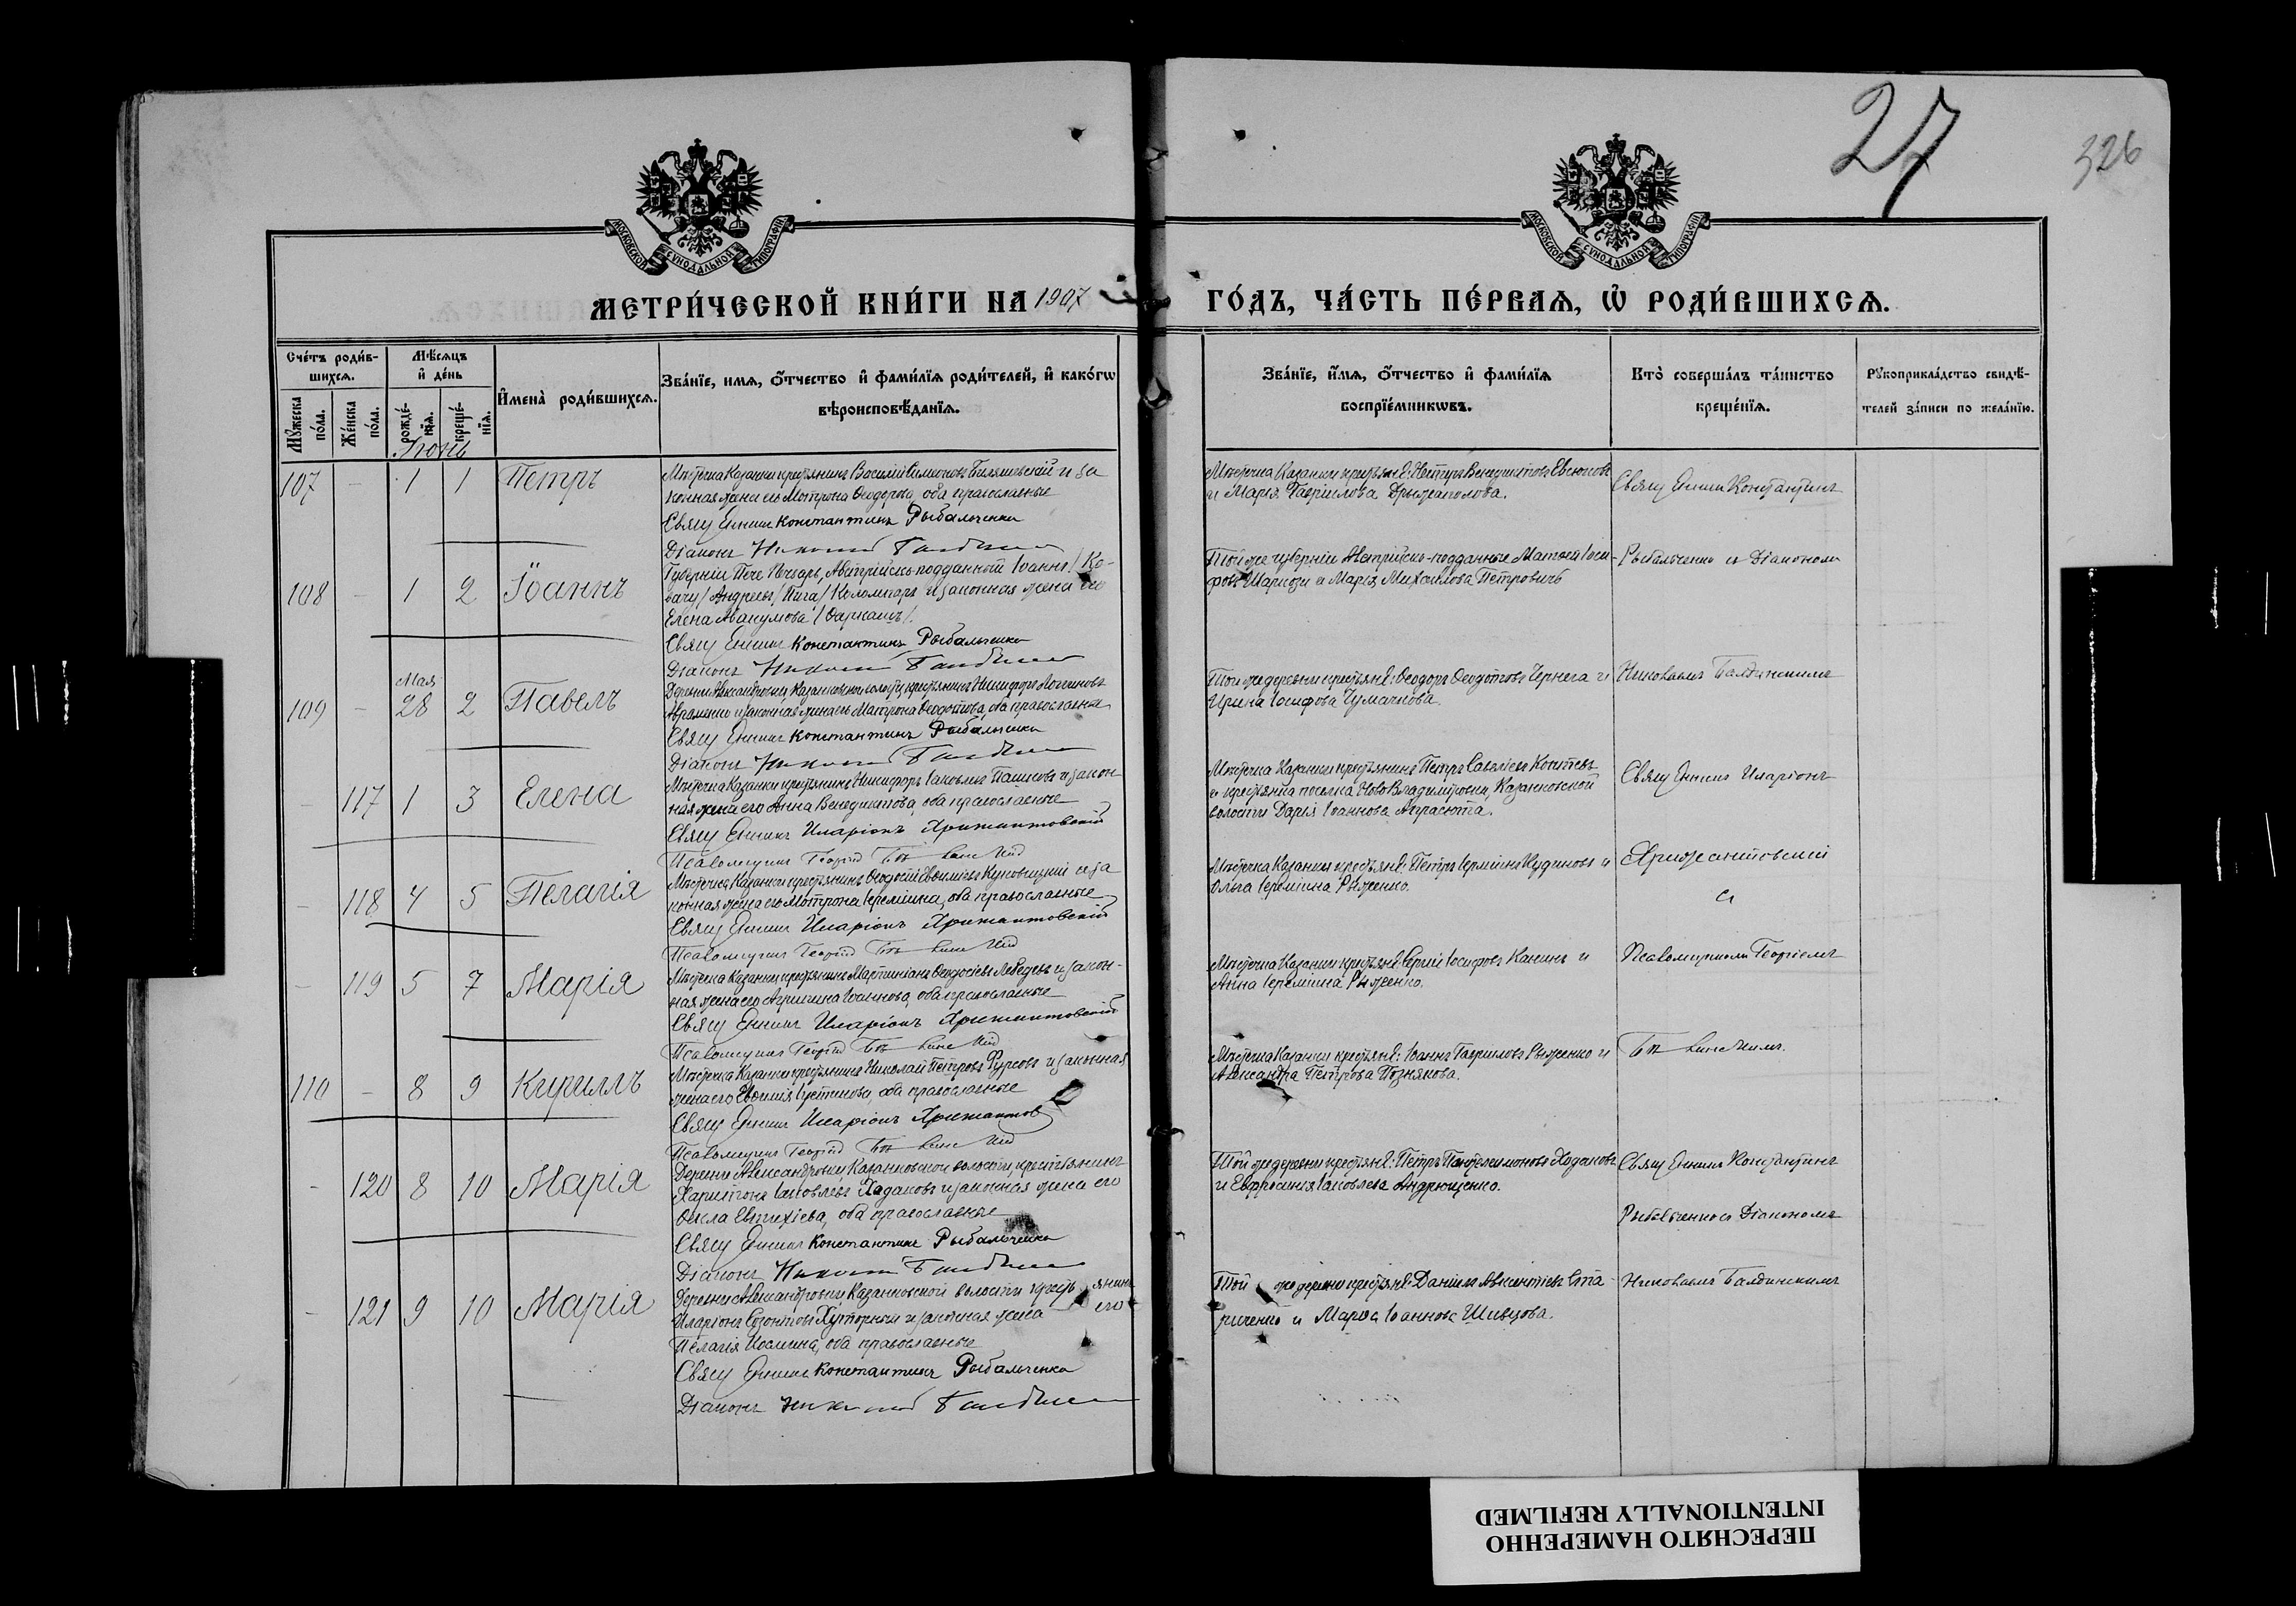 27
326
МОСКОВСКОЙ СѴНОДАЛЬНОЙ ТИПОГРАФІИ
МОСКОВСКОЙ СѴНОДАЛЬНОЙ ТИПОГРАФІИ
МЕТРИ́ЧЕСКОЙ КНИ́ГИ НА 1907 ГО́ДЪ, ЧА́СТЬ ПЕ́РВАѦ, Ѡ҆ РОДИ́ВШИХСѦ.
Сче́тъ роди́в-
шихсѧ.
Мꙋ́жеска по́ла.
Же́нска по́ла.
Мѣ́сѧцъ
и҆ де́нь
рожде́-
нїѧ.
креще́-
нїѧ.
И҆мена̀ роди́вшихсѧ.
Зва́нїе, имѧ, ѻ҆́тчество и҆ фами́лїѧ роди́телей, и҆ како́гѡ
вѣроисповѣ́данїѧ.
Зва́нїе, и҆́мѧ, ѻ҆́тчество и҆ фами́лїѧ
воспрїе́мникѡвъ.
Кто̀ соверша́лъ та́инство
креще́нїѧ.
Рꙋкоприкла́дство свидѣ́-
телей за́писи по жела́нїю.
Іюнь
107 - 1 1 Петръ
Мѣстечка Казанки крестьянинъ Василій Симеоновъ и за
конная жена его Мотрона Ѳеодорова, оба православные
Свящ Константинъ Рыбальченко
Діаконъ
Мѣстечка Казанки крестьяне: Венедиктовъ Евсюковъ
и Марія Гавриилова
Свящ Константинъ
108 - 1 2 Іоаннъ
Губерніи Австрійско-подданный Іоаннъ / Ко-
вачу / Андреевъ / Пига / Коломпаръ и законная жена его
Елена Авакумова
Свящ Константинъ Рыбальченко
Діаконъ
Той же губерніи Австрійско-подданные Матвей Іоси-
фовъ и Марія Михаилова Петровичъ
Рыбальченко съ Діакономъ
Мая
109 - 28 2 Павелъ
Деревни Александровки, Казанковской волости, крестьянинъ Никифоръ Логгиновъ
Авраменко и законная жена его Матрона Ѳеодотова, оба православные
Свящ Константинъ Рыбальченко
Діаконъ
Той же деревни крестьяне: Ѳеодоръ Ѳеодотовъ Чернега и
Ирина Іосифова Чумачкова.
Николаемъ Балдинскимъ
- 117 1 3 Елена
Мѣстечка Казанки крестьянинъ Никифоръ Іаковлевъ Пашковъ и закон-
ная жена его Анна Венедиктова, оба православные
Свящ Иларіонъ Хрижантовскій
Псаломщикъ Георгій
Мѣстечка Казанки крестьянинъ Петръ Савеліевъ
и крестьянка поселка Ново Владиміровки, Казанковской
волости Дарія Іоаннова
Свящ Иларіонъ
- 118 4 5 Пелагія
Мѣстечка Казанки крестьянинъ Ѳеодосій Евѳиміевъ и за
конная жена его Мотрона Іереміина, оба православные
Свящ Иларіонъ Хрижантовскій
Псаломщикъ Георгій
Мѣстечка Казанки крестьяне: Петръ Іереміинъ Кудиновъ и
Ольга Іереміина Рыженко.
Хрижантовскій
съ
- 119 5 7 Марія
Мѣстечка Казанки, крестьянинъ Мартиніанъ Ѳеодосіевъ Лебедевъ и закон-
ная жена его Агрипина Іоаннова, оба православные
Свящ Иларіонъ Хрижантовскій
Псаломщикъ Георгій
Мѣстечка Казанки крестьяне: Сергій Іосифовъ Канинъ и
Анна Іереміина Рыженко.
Псаломщикомъ Георгіемъ
110 - 8 9 Кириллъ
Мѣстечка Казанки крестьянинъ Николай Петровъ Фурсовъ и законная
жена его Евѳимія Іустинова, оба православные
Свящ Иларіонъ Хрижантов
Псаломщикъ Георгій
Мѣстечка Казанки крестьяне: Іоаннъ Гавриловъ Рыженко и
Александра Петрова Познякова.
- 120 8 10 Марія
Деревни Александровки, Казанковской волости, крестьянинъ
Харитонъ Іаковлевъ Ходаковъ и законная жена его
Ѳекла Евтихіева, оба православные
Свящ Константинъ Рыбальченко
Діаконъ
Той же деревни крестьяне: Петръ Пантелеимоновъ Ходаковъ
и Евфросинія Іаковлева Андрющенко.
Свящ Константинъ
Рыбальченко съ Діакономъ
- 121 9 10 Марія
Деревни Александровки Казанковской волости крестьянинъ
Иларіонъ Созонтовъ Хуторный и законная жена его
Пелагія Космина, оба православные
Свящ Константинъ Рыбальченко
Діаконъ
Той же деревни крестьяне: Даніилъ Авксентіевъ Ста-
риченко и Марѳа Іоаннова Шивцова.
Николаемъ Балдинскимъ
ПЕРЕСНЯТО НАМЕРЕННО
INTENTIONALLY REFILMED